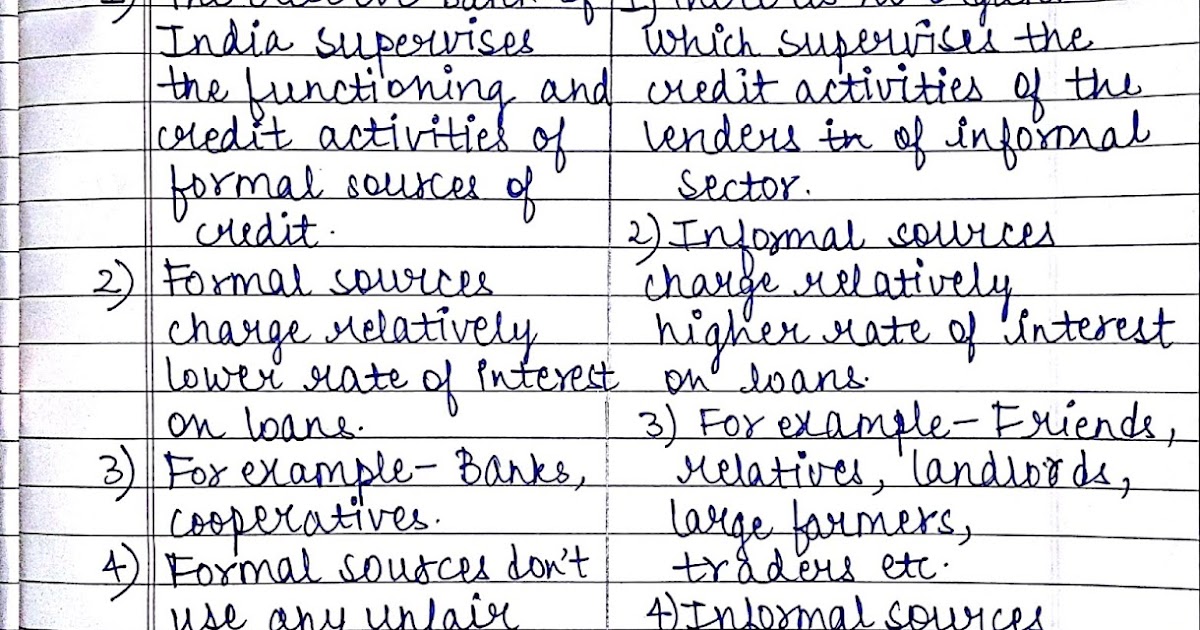 India supervises
the functioning and
credit activities of
formal sources of
credit.
2) Formal sources
charge relatively
lower rate of interest
on loans.
3) For example - Banks,
cooperatives.
4) Formal sources don't
use any unfair
which supervises the
credit activities of the
lenders in of informal
sector.
2) Informal sources
charge relatively
higher rate of interest
on loans.
3) For example - Friends,
relatives, landlords,
large farmers,
traders etc.
4) Informal sources